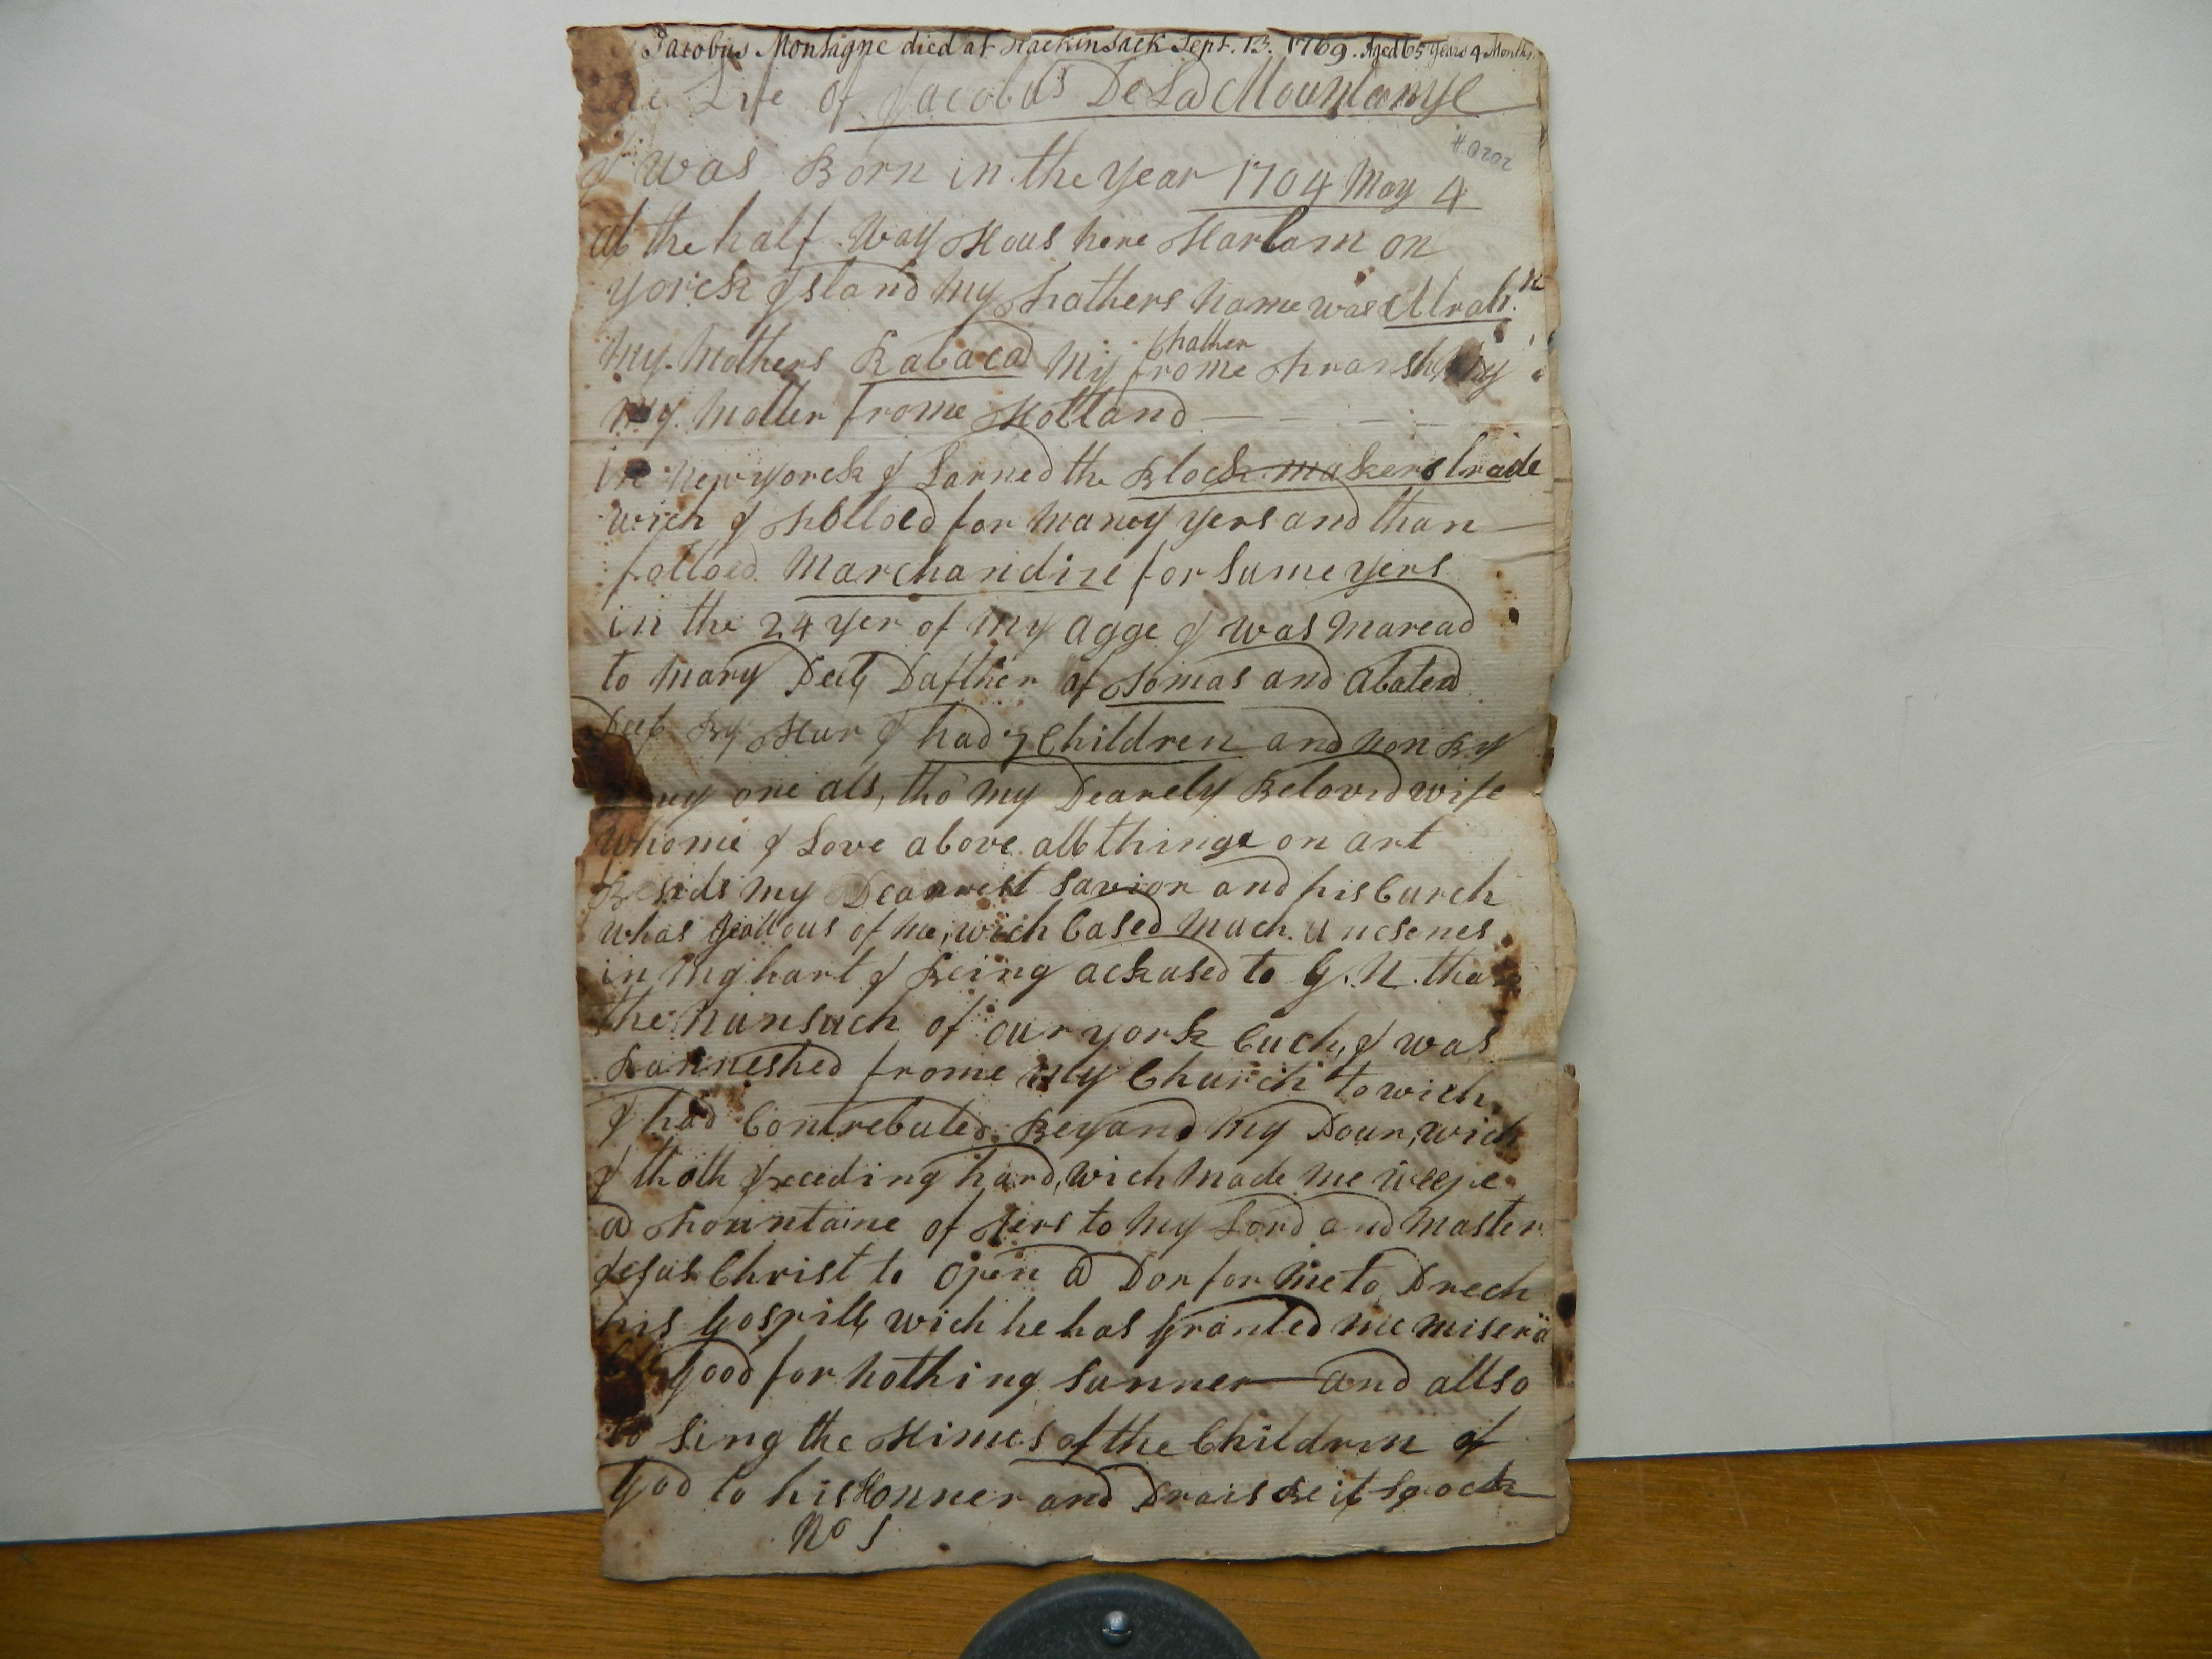 Jacobus Montagne died at Hackinsack Sept. 13. 1769. Aged 65 Years 4 Months
The Life of Jacobus De La Mountanye
#0202
I was Born in the year 1704 May 4
at the half Way Hous here Harlam on
yorck Island my fathers name was
my Mothers Rabaca My father frome
my Motter frome Holland
in new yorck I Larned the Block makers trade
wich I folloed for maney yers and than
folloed Marchandize for sume yers
in the 24 yer of my agge I was maread
to Mary Peet Dafther of Tomas and
Peet By Hur I had 7 Children and non By
aney one als, tho my Dearely Beloved wife
whome I Love above all things on art
Besids my Dearrest Savior and his Curch
whas Jeallous of me, wich Cased much unesenes
in my hart I Being ackused to G. N. than
the of our york Cuch, I was
Banneshed frome my Church to wich
I had Contrebuted Beyand my Pour, wich
I thoth Exceding hard, wich made me weepe
a fountaine of ters to my Lord and Master
Jesus Christ to open a Dor for me to Prech
his Gospill, wich he has Granted me misera
good for nothing sunner and allso
to sing the Himes of the Children of
God to his Honner and Prais Be it spock
No 1